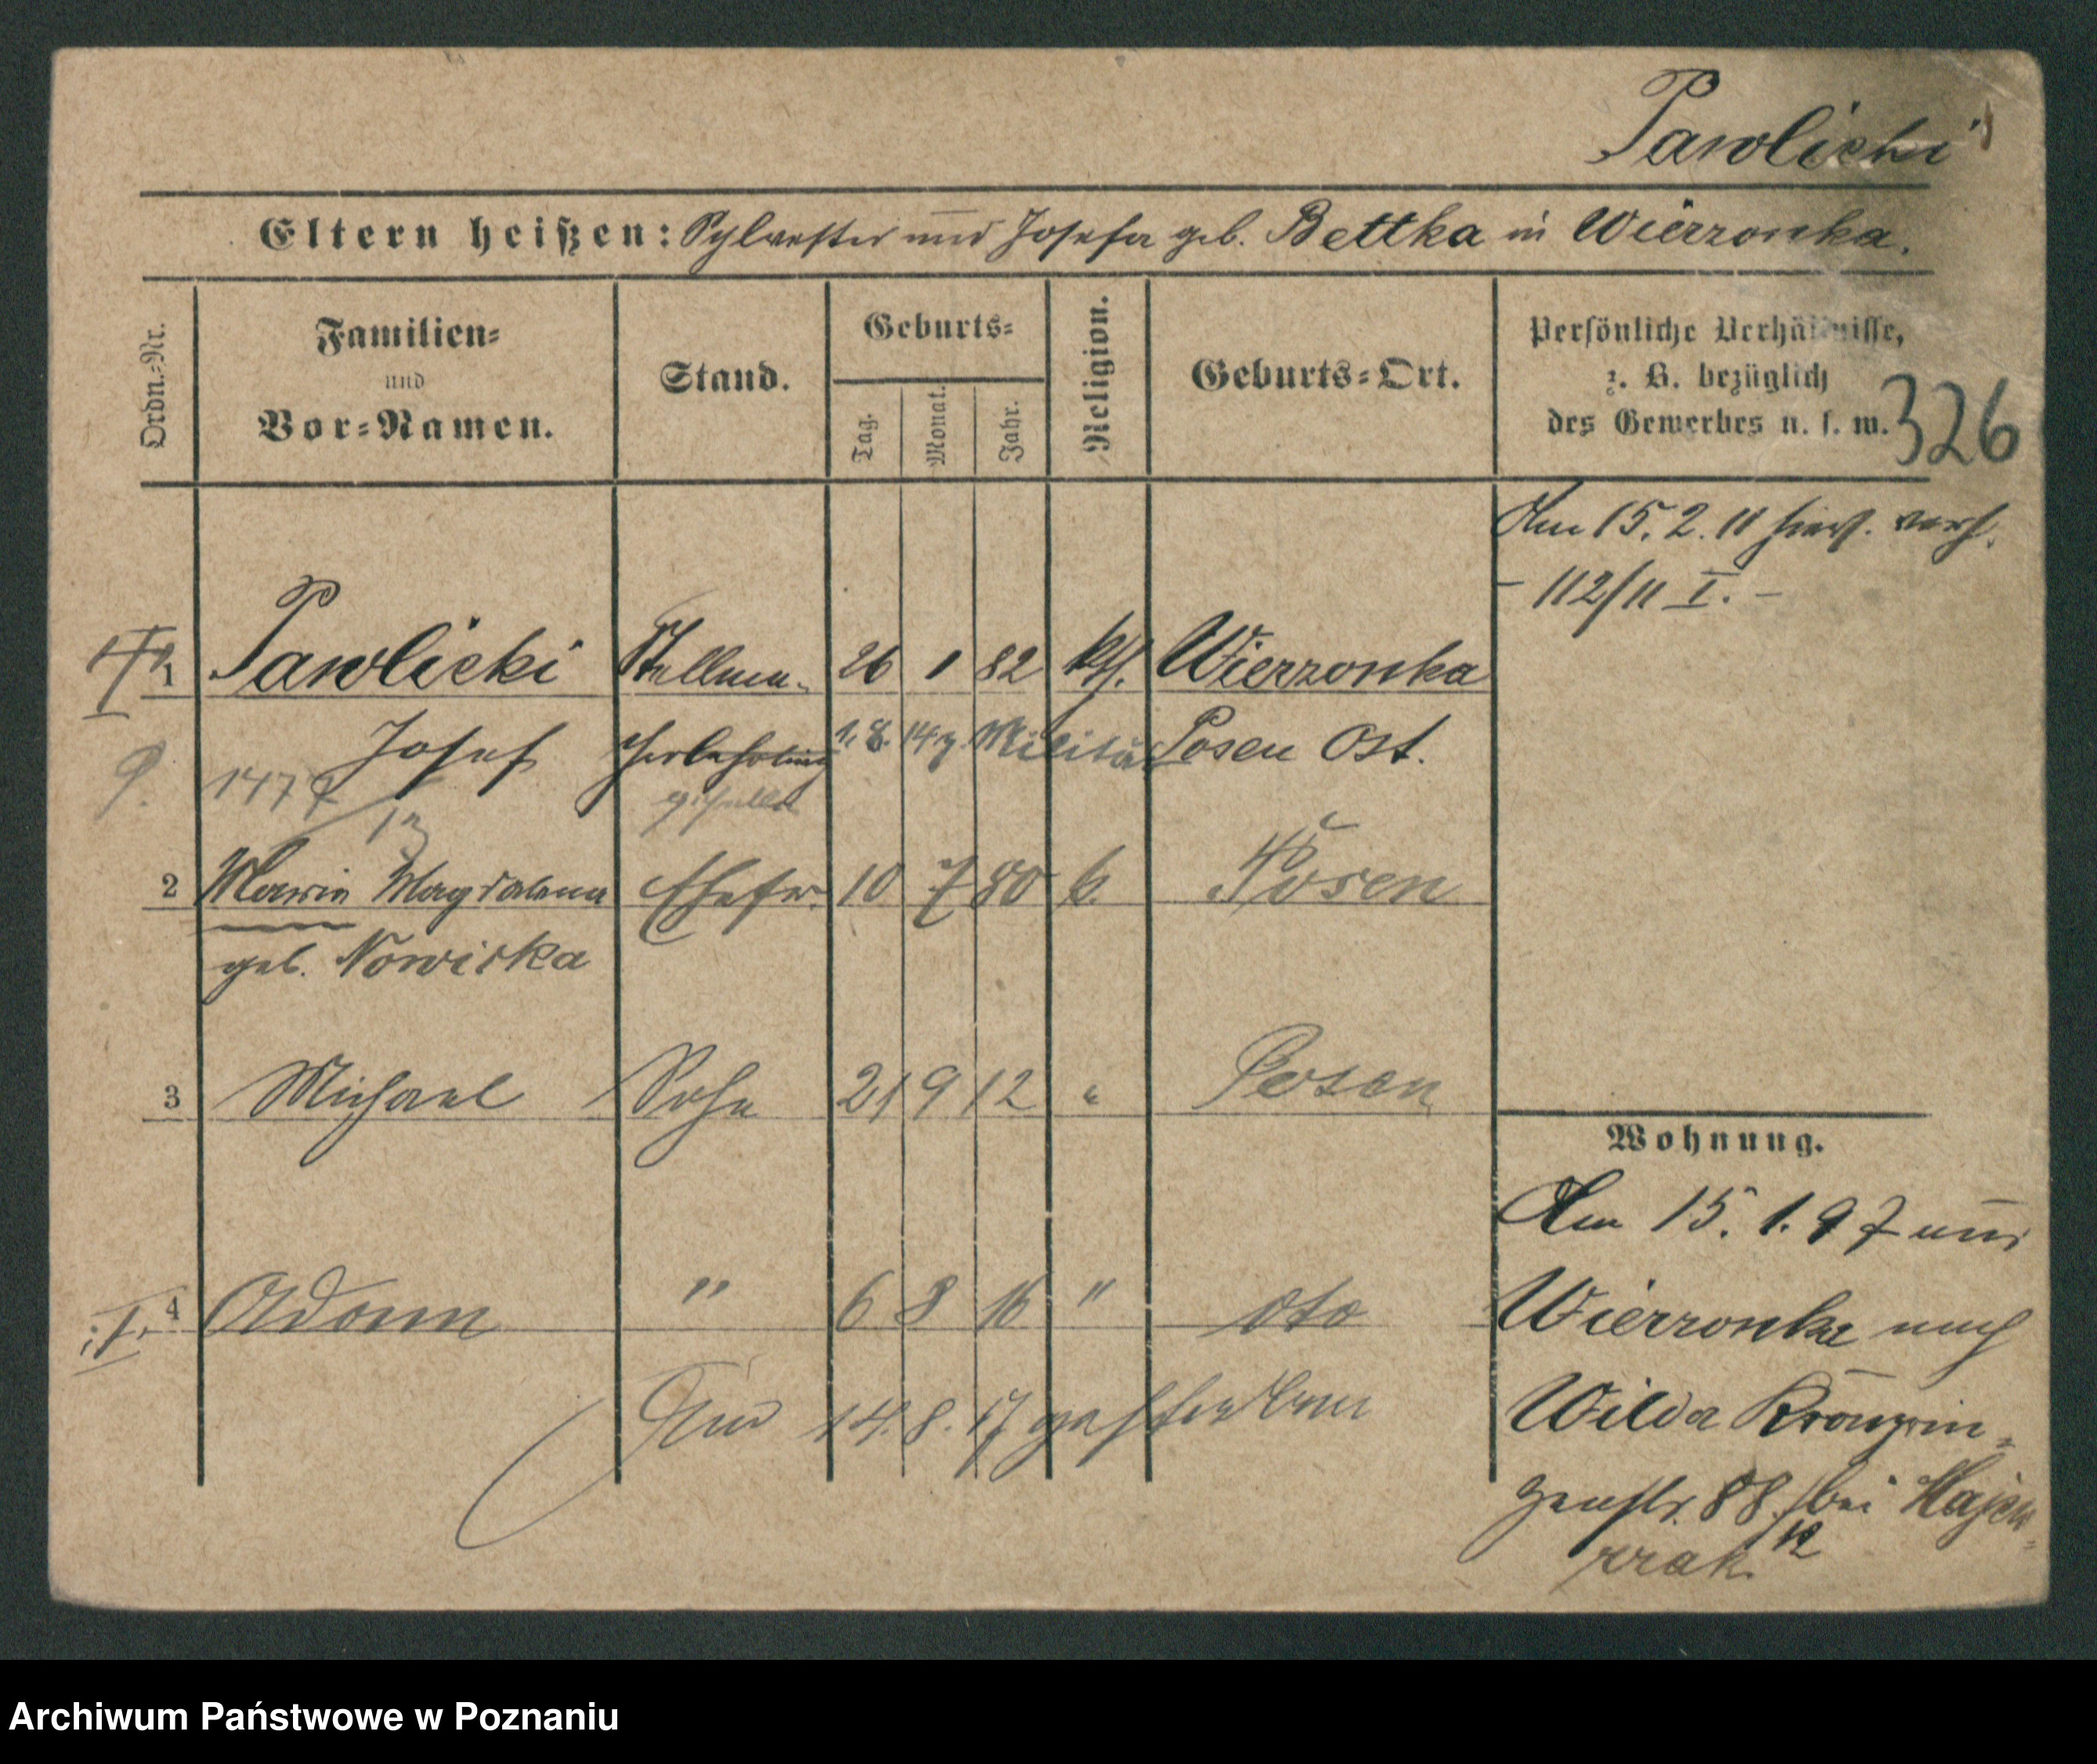 Pawlicki
Eltern heißen: Sylvester und Josefa geb. Bettka in Wierzonka.
Ordn.-Nr.
Familien-
und
Vor-Namen.
Stand.
Geburts-
Tag.
Monat.
Jahr.
Religion.
Geburts-Ort.
Persönliche Verhältnisse,
z. B. bezüglich
des Gewerbes u. s. w.
326
Am 15. 2. 11 hiers. verh.
– 112/11 I. –
Pawlicki Stellma- 26 1 82 kth. Wierzonka
Josef 1. 8. 14 z. Militär Posen Ost.
1477
geselle
2 Maria Magdalena Ehefr. 10 7 80 k. Posen
geb. Nowicka
3 Michael Sohn 21 9 12 " Posen
4 Adam " 6 8 16 " dto
Am 14. 8. 17 gestorben
Wohnung.
Am 15. 1. 97 von
Wierzonka nach
Wilda Kronprin-
zenstr. 88. bei
12
Archiwum Państwowe w Poznaniu